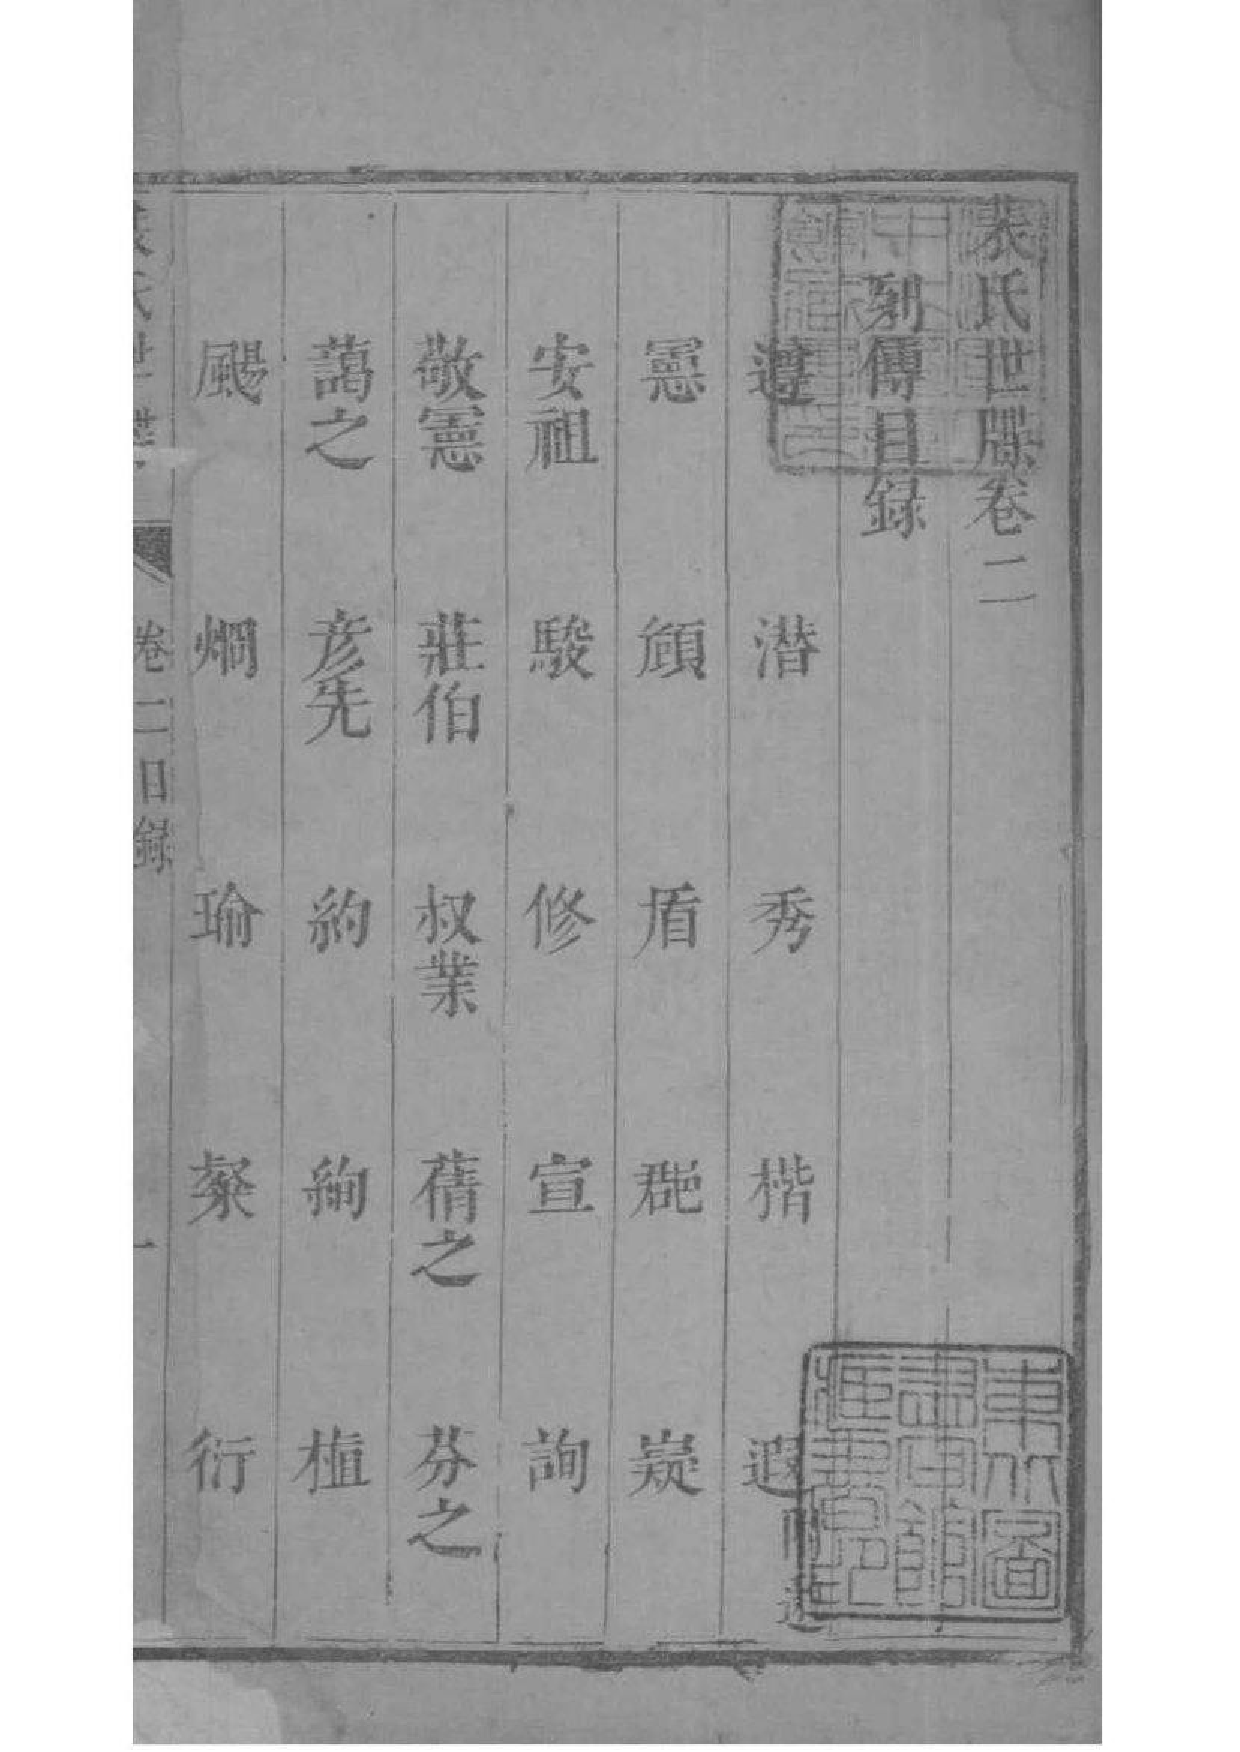 裴氏世牒卷二
列傳目錄
遵 潛 秀 楷 遐
憲 頠 盾 嶷
安祖 駿 修 宣 詢
敬憲 莊伯 叔業 蒨之 芬之
藹之 彥先 約 絢 植
颺 烱 瑜 粲 衍
裴氏世牒 卷二目錄 一
東北圖